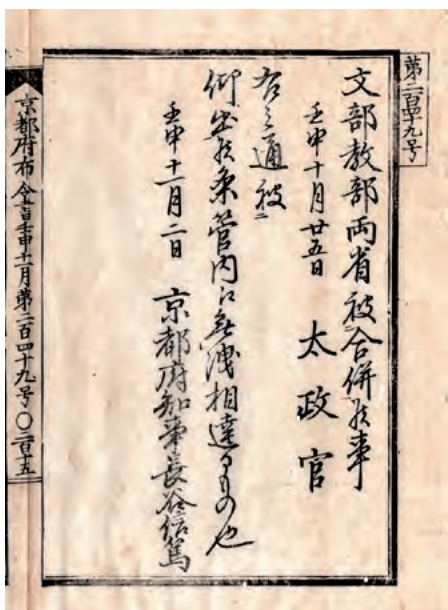 第二百四十九号
文部教部両省被合併候事
壬申十月廿五日　太政官
右之通被
仰出候条管内江無洩相達るもの也
壬申十一月二日　京都府知事長谷信篤
京都府布令書壬申十一月第二百四十九号〇二百十五